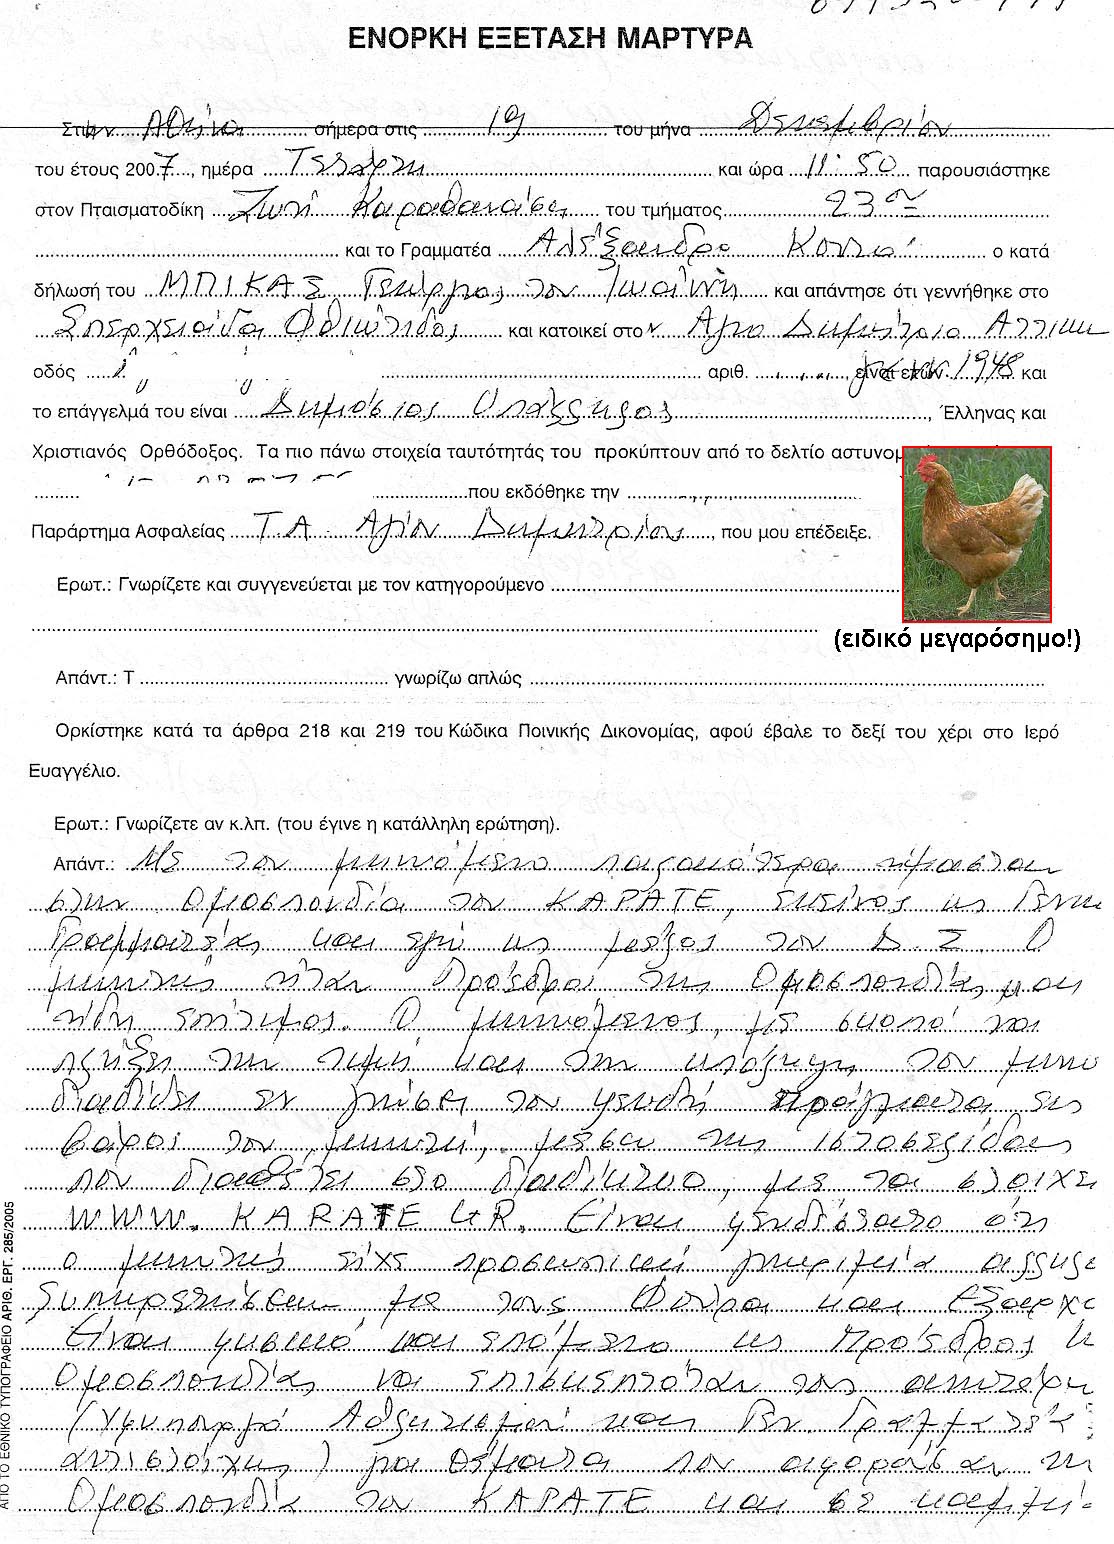 ΕΝΟΡΚΗ ΕΞΕΤΑΣΗ ΜΑΡΤΥΡΑ
Στην Αθήνα σήμερα στις 19 του μήνα Δεκεμβρίου
του έτους 2007, ημέρα Τετάρτη και ώρα 11:50 παρουσιάστηκε
στον Πταισματοδίκη Ζωή Καραθανάση του τμήματος 23ο
και το Γραμματέα Αλεξάνδρα ο κατά
δήλωσή του ΜΠΙΚΑΣ Γεώργιος του Ιωάννη και απάντησε ότι γεννήθηκε στο
Σπερχειάδα Φθιώτιδος και κατοικεί στον Αγιο Δημήτριο Αττικη
οδός αριθ. είναι ετών 1948 και
το επάγγελμά του είναι Δημόσιος Υπάλληλος, Έλληνας και
Χριστιανός Ορθόδοξος. Τα πιο πάνω στοιχεία ταυτότητάς του προκύπτουν από το δελτίο αστυνομ
που εκδόθηκε την
Παράρτημα Ασφαλείας Τ.Α. Αγίου Δημητρίου, που μου επέδειξε.
Ερωτ.: Γνωρίζετε και συγγενεύεται με τον κατηγορούμενο
(ειδικό μεγαρόσημο!)
Απάντ.: Τ γνωρίζω απλώς
Ορκίστηκε κατά τα άρθρα 218 και 219 του Κώδικα Ποινικής Δικονομίας, αφού έβαλε το δεξί του χέρι στο Ιερό
Ευαγγέλιο.
Ερωτ.: Γνωρίζετε αν κ.λπ. (του έγινε η κατάλληλη ερώτηση).
Απάντ.: Με τον μηνυόμενο παλαιότερα ήμασταν
στην Ομοσπονδία του ΚΑΡΑΤΕ, εκείνος ως Γενικ
Γραμματέας και εγώ ως μέλος του Δ.Σ. Ο
μηνυτής ήταν Πρόεδρος της Ομοσπονδίας και
ήδη επίτιμος. Ο μηνυόμενος, με σκοπό να
πλήξει την τιμή και την υπόληψη του μηνυ
διαδίδει εν γνώσει του ψευδή πράγματα εις
βάρος του μηνυτή, μέσω της ιστοσελίδας
που διαθέτει στο διαδίκτυο, με τα στοιχε
WWW. KARATE GR. Είναι ψευδέστατο ότι
ο μηνυτής είχε προσωπική γνωριμία αλληλο
με τους Φούρα και Εξαρχο
Είναι φυσικό και επόμενο ως Πρόεδρος
Ομοσπονδίας να επισκεπτόταν τους ανωτέρω
(Υφυπουργό Αθλητισμού και Γεν. Γραμματέα
αντιστοίχως) για θέματα που αφορούσαν την
Ομοσπονδία του ΚΑΡΑΤΕ και σε
ΑΠΟ ΤΟ ΕΘΝΙΚΟ ΤΥΠΟΓΡΑΦΕΙΟ ΑΡΙΘ. ΕΡΓ. 285/2005